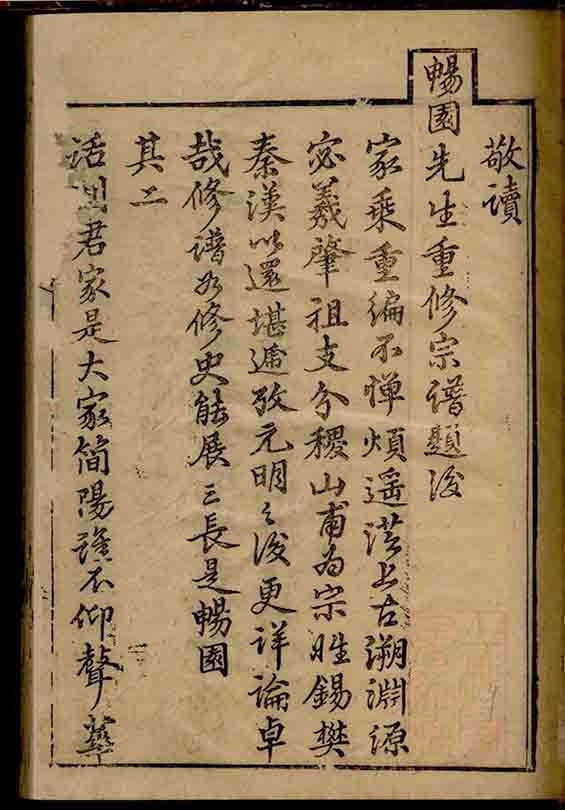 敬讀
暢園先生重修宗譜題後
家乘重編不憚煩遥從上古溯淵源
宓羲肇祖支分稷山甫為宗姓錫樊
秦漢以還堪遞攷元明之後更詳論卓
哉修譜如修史能展三長是暢園
其二
活 君家是大家簡陽誰不仰聲華